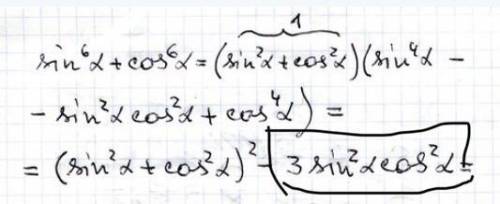 1
sin⁶α + cos⁶α = (sin²α + cos²α)(sin⁴α -
- sin²α cos²α + cos⁴α) =
= (sin²α + cos²α)² - 3 sin²α cos²α =